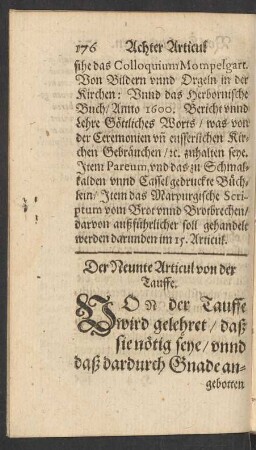 176 Achter Articul
sihe das Colloquium Mompelgart.
Von Bildern vnnd Orgeln in der
Kirchen: Vnnd das Herbornische
Buch / Anno 1600. Bericht vnnd
Lehre Göttliches Worts / was von
der Ceremonien vñ eusserlichen Kir-
chen Gebräuchen / ꝛc. zuhalten seye.
Item Pareum, vnd das zu Schmal-
kalden vnnd Cassel gedruckte Büch-
lein / Item das Marpurgische Scri-
ptum vom Brot vnnd Brotbrechen /
darvon außführlicher soll gehandelt
werden darunden im 15. Articul.
Der Neunte Articul von der
Tauffe.
VON der Tauffe
wird gelehret / daß
sie nötig seye / vnnd
daß dardurch Gnade an-
gebotten